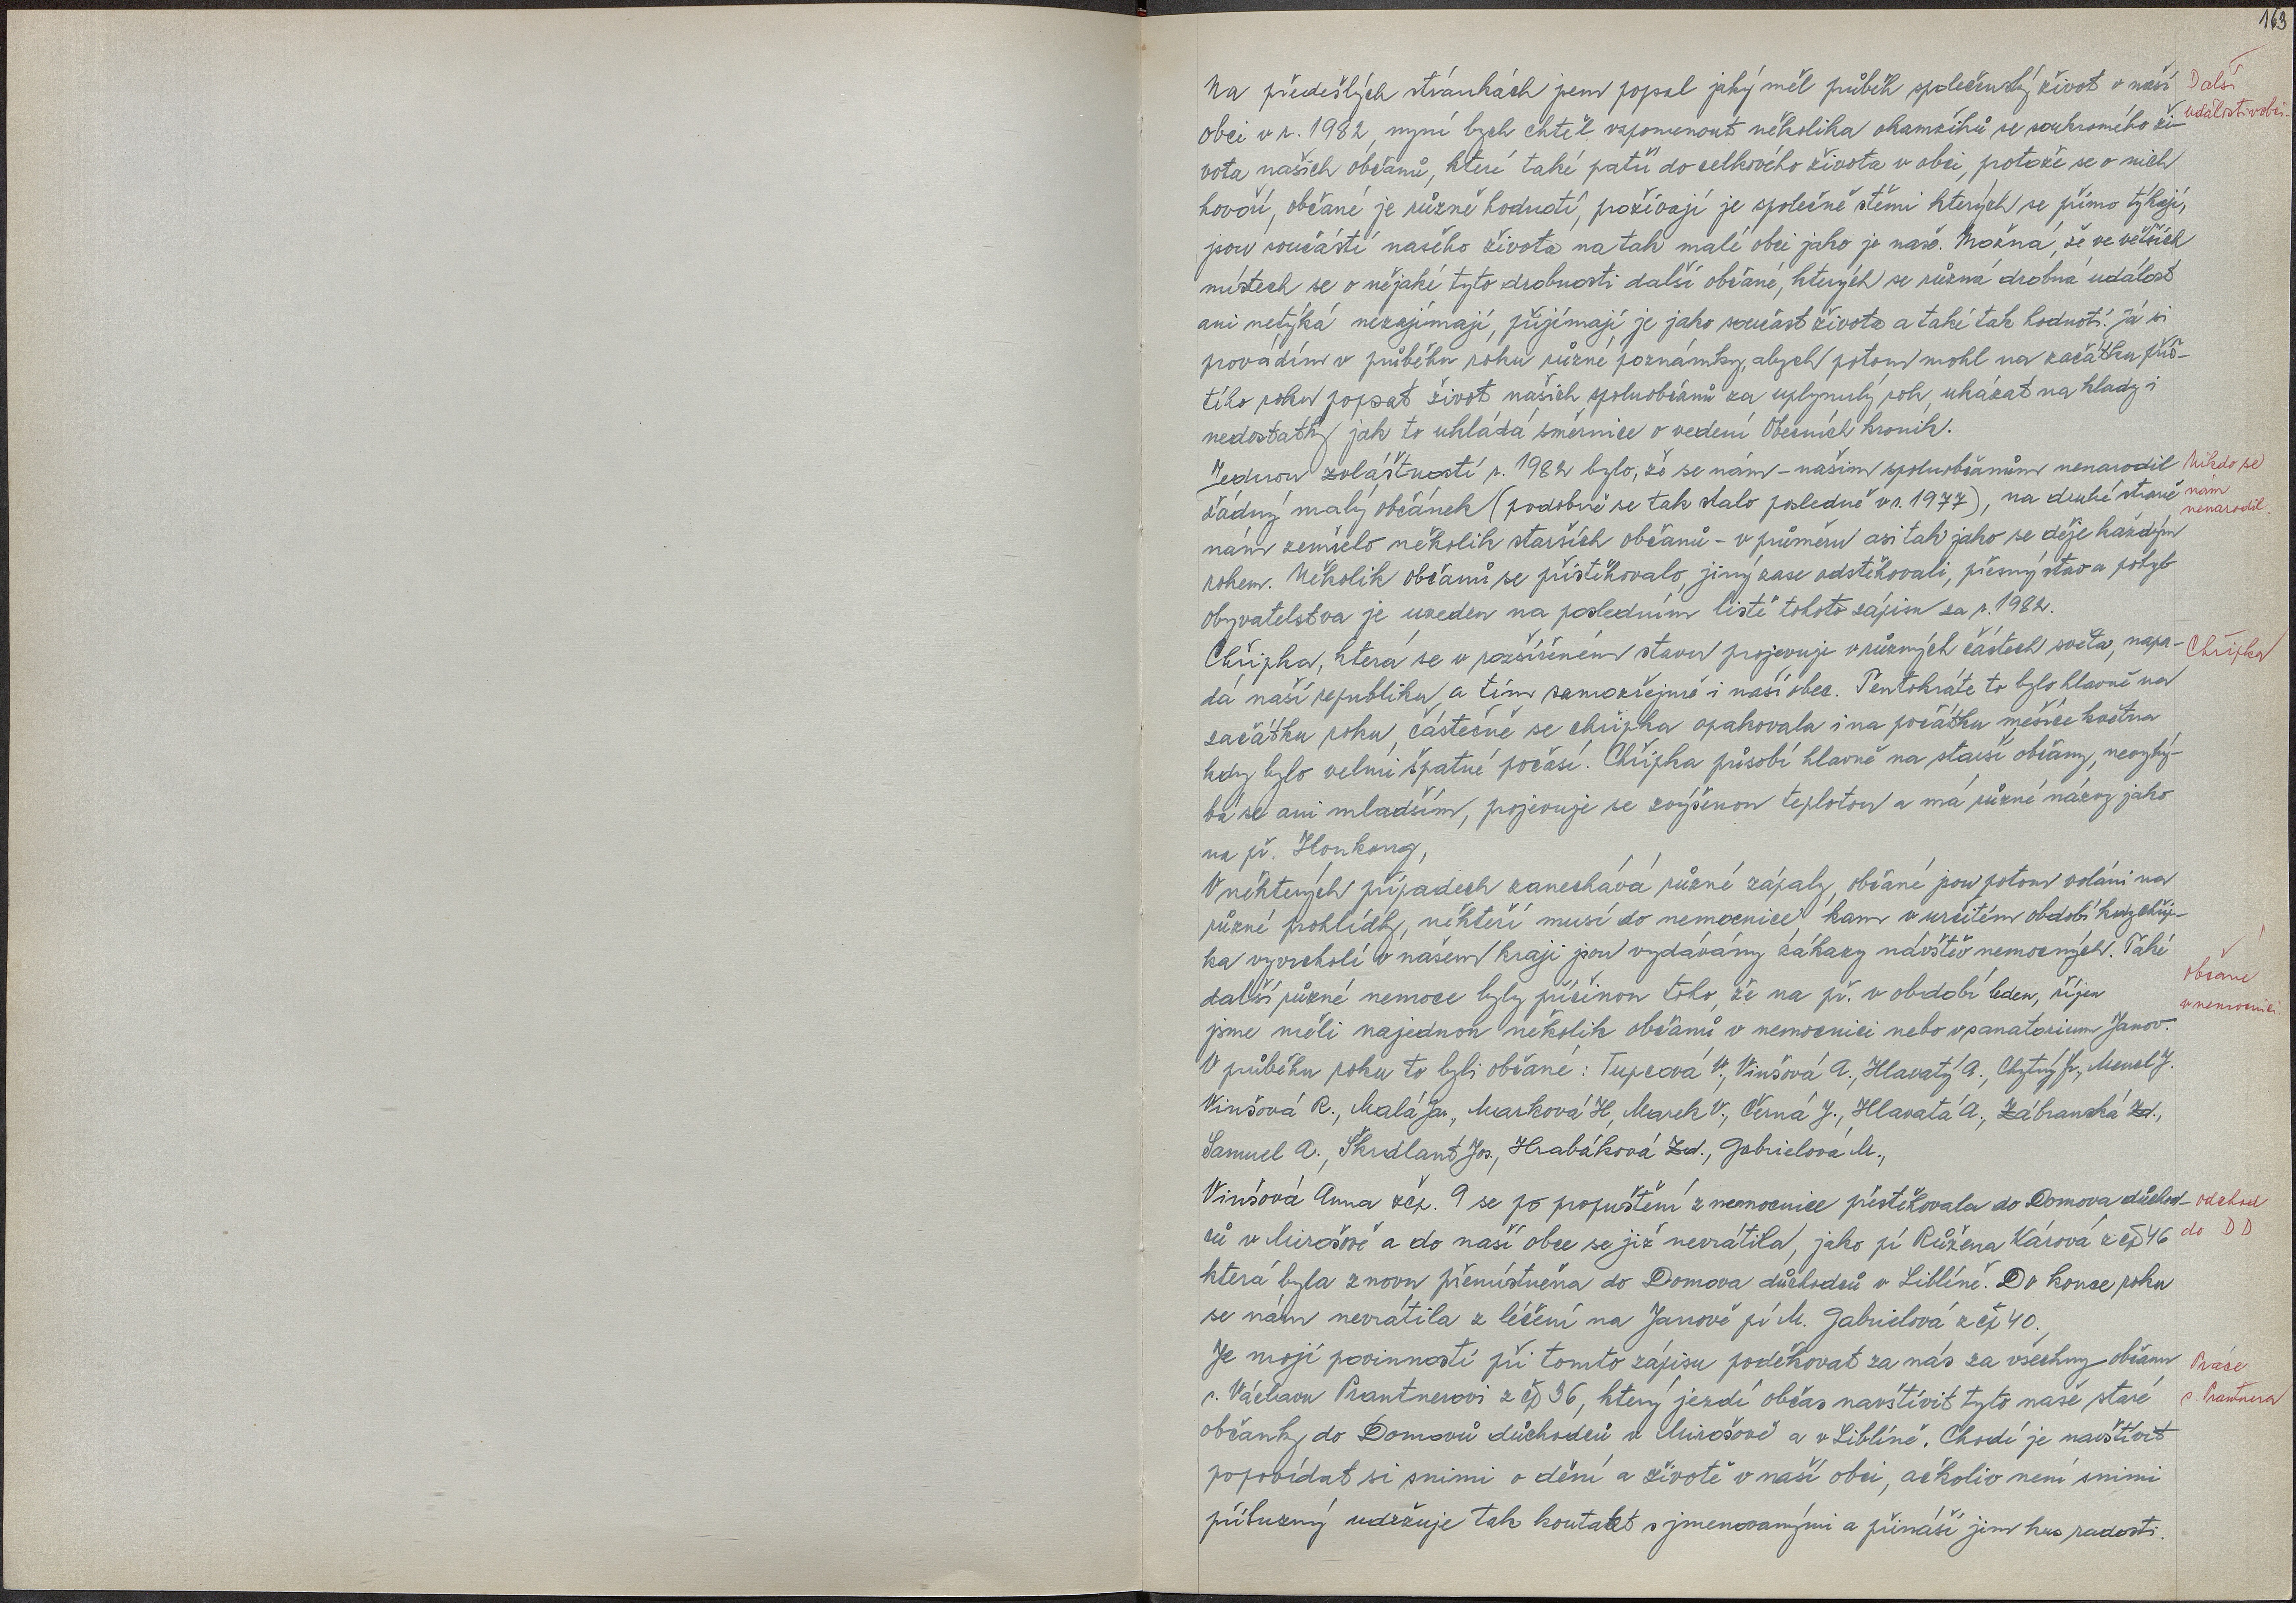 163
Na předešlých stránkách jsem popsal jaký měl průběh společenský život v naší
Další
události v obci.
obci v r. 1982, nyní bych chtěl vzpomenout několika okamžiků se soukromého ži-
vota našich občanů, které také patří do celkového života v obci, protože se o nich
hovoří, občané je různě hodnotí, prožívají je společně stěmi kterých se přímo týkají,
jsou součástí našeho života na tak malé obci jako je naše. Možná, že ve větších
místech se o nějaké tyto drobnosti další občané, kterých se různá drobná událost
ani netýká nezajímají, přijímají je jako součást života a také tak hodnotí. Já si
provádím v průběhu roku různé poznámky, abych potom mohl na začátku příš-
tího roku popsat život našich spoluobčanů za uplynulý rok, ukázat na klady i
nedostatky jak to ukládá směrnice o vedení Obecních kronik.
Jednou zvláštností r. 1982 bylo, že se nám - našim spoluobčanům nenarodil
Nikdo se
nám
nenarodil.
žádný malý občánek (podobně se tak stalo posledně v r. 1977), na druhé straně
nám zemřelo několik starších občanů - v průměru asi tak jako se děje každým
rokem. Několik občanů se přistěhovalo, jiný zase odstěhovali, přesný stav a pohyb
obyvatelstva je uveden na posledním listě tohoto zápisu za r. 1982.
Chřipka, která se v rozšířeném stavu projevuje v různých částech světa, napa-
Chřipka
dá naší republiku a tím samozřejmě i naší obec. Tentokráte to bylo hlavně na
začátku roku, částečně se chřipka opakovala i na počátku měsíce května
kdy bylo velmi špatné počasí. Chřipka působí hlavně na starší občany, nevyhý-
bá se ani mladším, projevuje se zvýšenou teplotou a má různé názvy jako
na př. Honkong,
V některých případech zanechává různé zápaly, občané jsou potom voláni na
různé prohlídky, někteří musí do nemocnice, kam v určitém období kdy chřip-
ka vyvrcholí v našem kraji jsou vydávány zákazy návštěv nemocných. Také
další různé nemoce byly příčinou toho, že na př. v období leden, říjen
občané
v nemocnici.
jsme měli najednou několik občanů v nemocnici nebo v sanatorium Janov.
V průběhu roku to byli občané: Tupcová V., Vinšová A., Hlavatý A., Chytrý Fr., Mencl J.
Vinšová R., Malá Jar., Marková H, Marek V., Černá J., Hlavatá A., Zábranská Zd.,
Samuel A., Škrdlant Jos., Hrabáková Zd., Gabrielová M.,
Vinšová Anna z čp. 9 se po propuštění z nemocnice přestěhovala do Domova důchod-
odchod
do DD
ců v Mirošově a do naší obce se již nevrátila, jako pí Růžena Kárová z čp 46
která byla znovu přemístněna do Domova důchodců v Liblíně. Do konce roku
se nám nevrátila z léčení na Janově pí M. Gabrielová z čp 40.
Je mojí povinností při tomto zápisu poděkovat za nás za všechny občanu
Práce
s. Prantnera
s. Václavu Prantnerovi z čp 36, který jezdí občas navštívit tyto naše staré
občanky do Domovů důchodců v Mirošově a v Liblíně. Chodí je navštívit
popovídat si snimi o dění a životě v naší obci, ačkoliv není snimi
příbuzný udržuje tak kontakt s jmenovanými a přináší jim kus radosti.